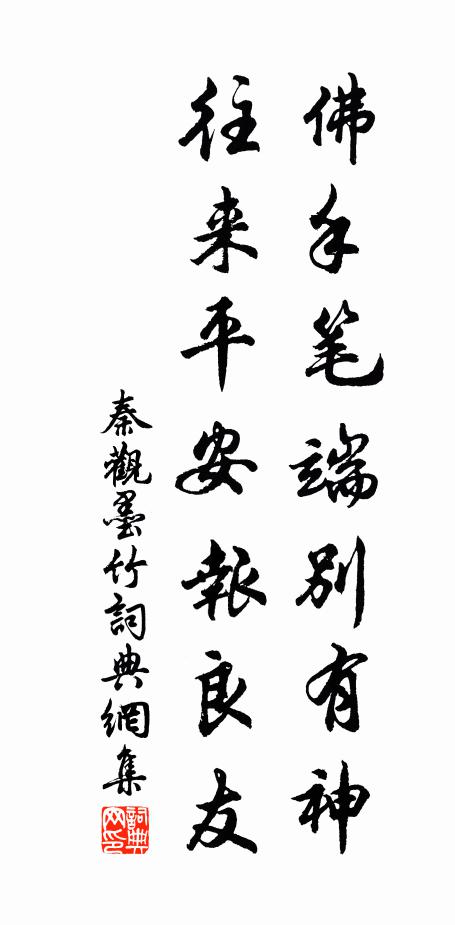 佛手笔端别有神
往来平安報良友
秦觀墨竹詞典網集
詞典网印